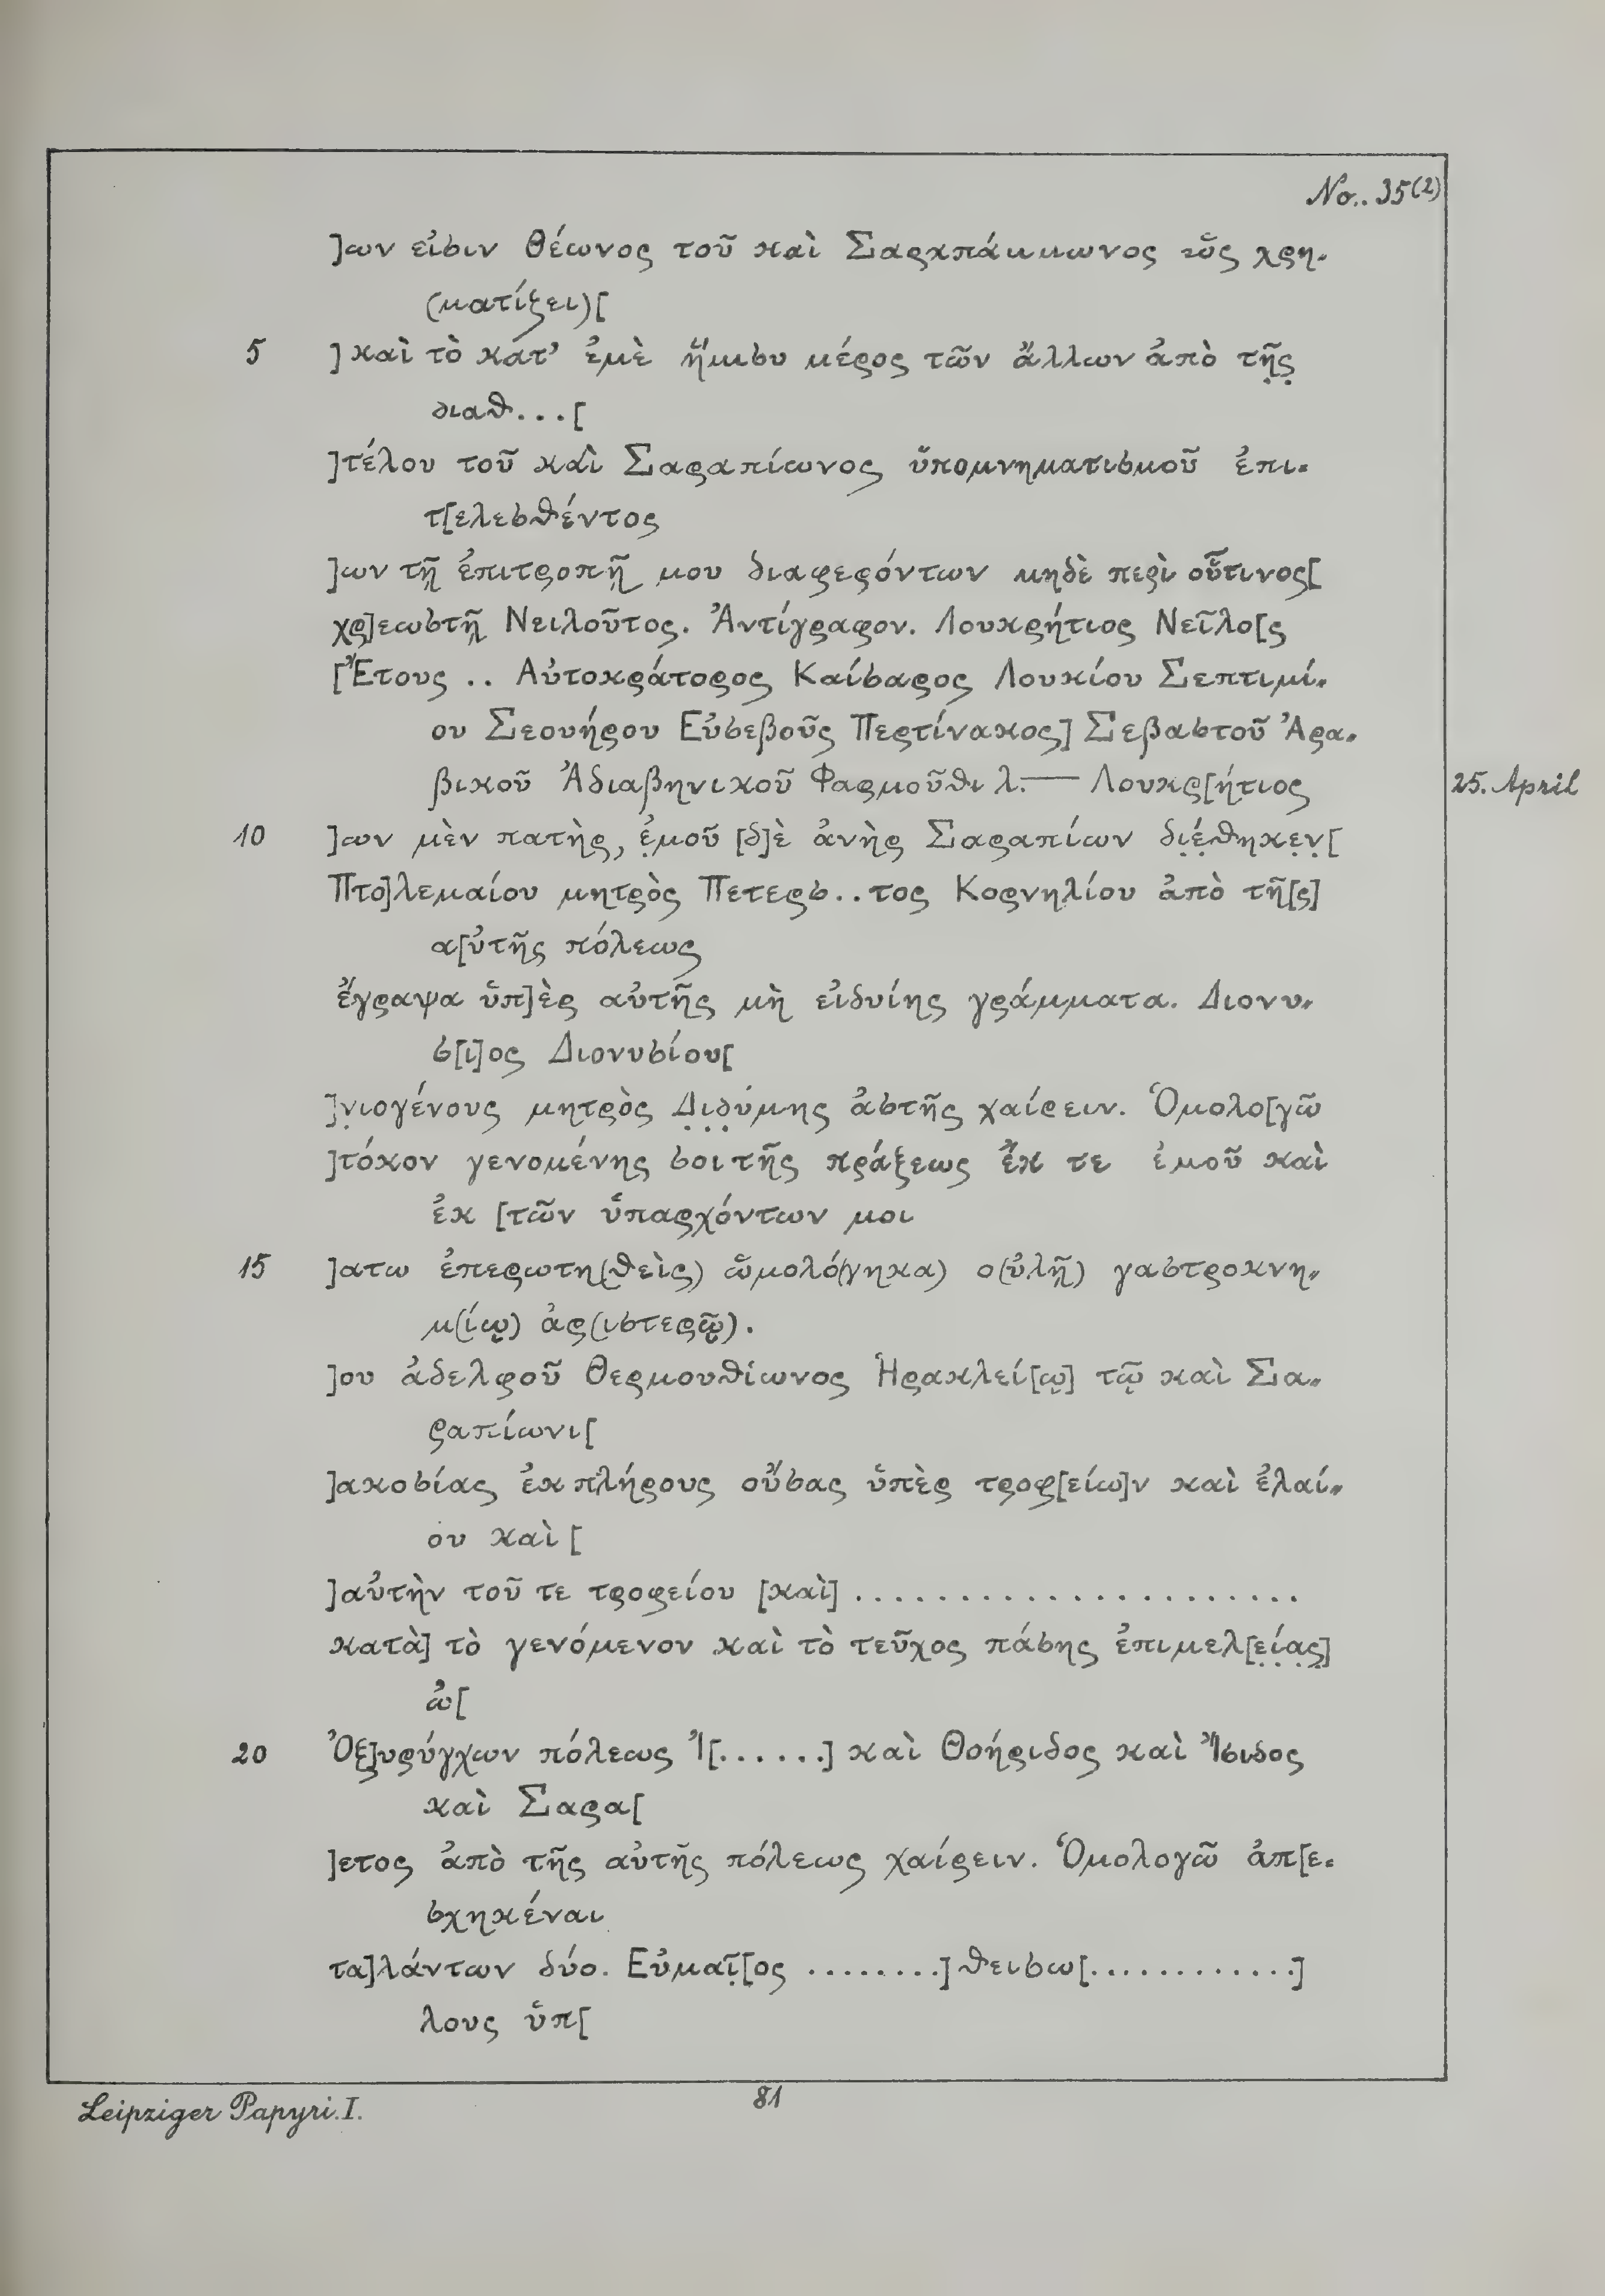 No.. 35(2)
]ων εἰσιν Θέωνος τοῦ καὶ Σαραπάμμωνος ὡς χρη-
(ματίζει)[
5 ] καὶ τὸ κατ’ ἐμὲ ἥμισυ μέρος τῶν ἄλλων ἀπὸ τῆ̣ς̣
διαθ...[
]τέλου τοῦ καὶ Σαραπίωνος ὑπομνηματισμοῦ ἐπι-
τ[ελεσθέντος
]ων τῇ ἐπιτροπῇ μου διαφερόντων μηδὲ περὶ οὗτινος[
χρ]εωστῇ Νειλοῦτος. Ἀντίγραφον. Λουκρήτιος Νεῖλο[ς
[Ἔτους .. Αὐτοκράτορος Καίσαρος Λουκίου Σεπτιμί-
ου Σεουήρου Εὐσεβοῦς Περτίνακος] Σεβαστοῦ Ἀρα-
βικοῦ Ἀδιαβηνικοῦ Φαρμοῦθι λ.— Λουκρ[ήτιος
25. April
10 ]ων μὲν πατὴρ, ἐ̣μοῦ [δ]ὲ ἀνὴρ Σαραπίων δι̣έ̣θηκε̣ν̣[
Πτο]λεμαίου μητρὸς Πετερσ..τος Κορνηλίου ἀπὸ τῆ[ς]
α[ὐτῆς πόλεως
ἔγραψα ὑπ]ὲρ αὐτῆς μὴ εἰδυίης γράμματα. Διονυ-
σ[ι]ος Διονυσίου[
]ν̣ιογένους μητρὸς Δ̣ι̣δ̣ύμης ἀστῆς χαίρειν. Ὁμολο[γῶ
]τόκον γενομένης σοι τῆς πράξεως ἔκ τε ἐμοῦ καὶ
ἐκ [τῶν ὑπαρχόντων μοι
15 ]ατω ἐπερωτη(θεὶς) ὡμολό(γηκα) ο(ὐλῇ) γαστροκνη-
μ(ίῳ) ἀρ(ιστερῷ).
]ου ἀδελφοῦ Θερμουθίωνος Ἡρακλεί[ῳ] τῷ καὶ Σα-
ραπίωνι[
]ακοσίας ἐκ πλήρους οὔσας ὑπὲρ τροφ[είω]ν καὶ ἐλαί-
ου καὶ [
]αὐτὴν τοῦ τε τροφείου [καὶ] ......................
κατὰ] τὸ γενόμενον καὶ τὸ τεῦχος πάσης ἐπιμελ[ε̣ί̣α̣ς̣]
ὠ[
20 Ὀξ]υρύγχων πόλεως Ἰ[......] καὶ Θοήριδος καὶ Ἴσιδος
καὶ Σαρα[
]ετος ἀπὸ τῆς αὐτῆς πόλεως χαίρειν. Ὁμολογῶ ἀπ[ε-
σχηκέναι
τα]λάντων δύο. Εὐμαῖ̣[ος ........] θεισω[............]
λους ὑπ[
Leipziger Papyri. I.
81